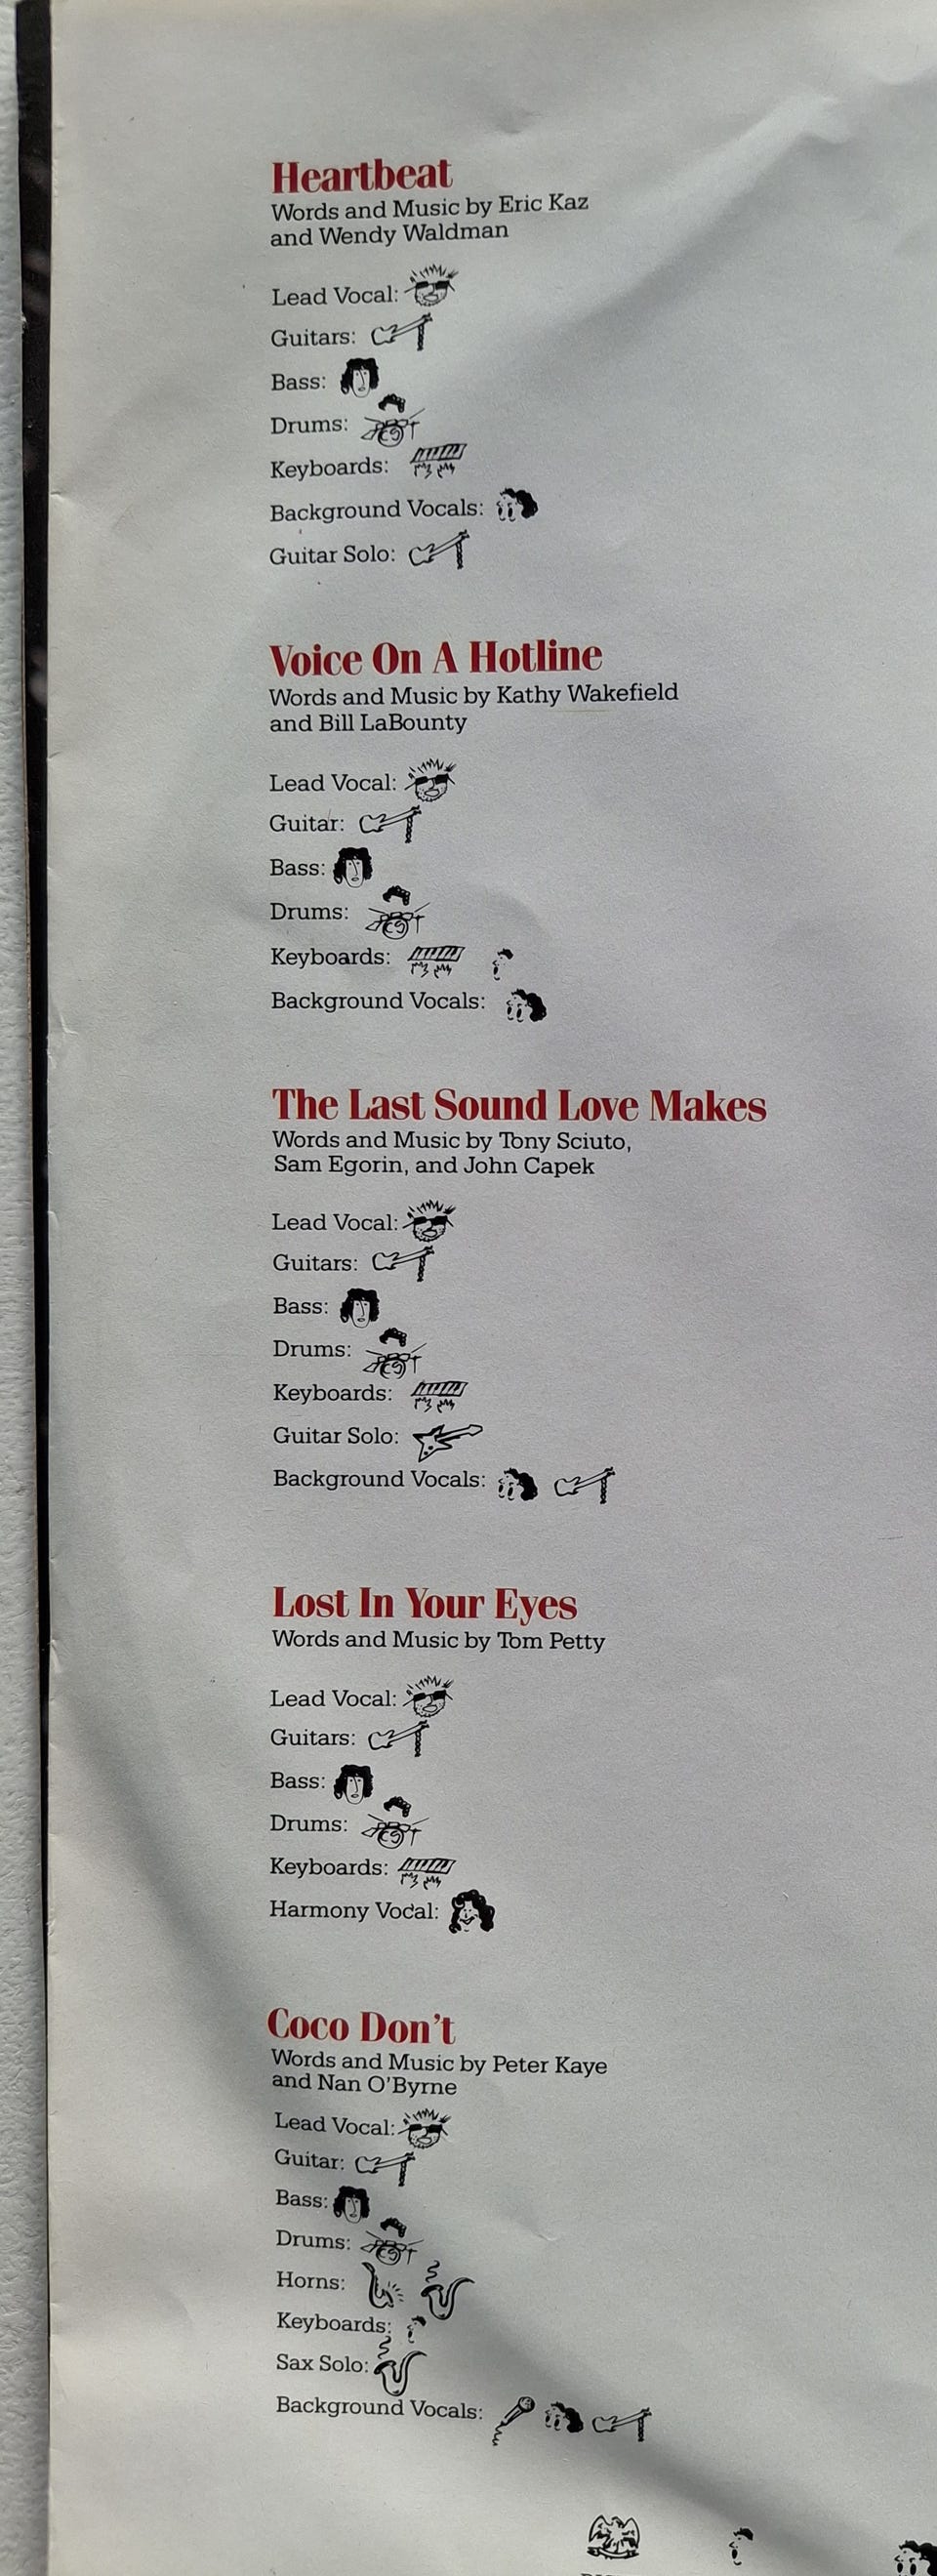 Heartbeat
Words and Music by Eric Kaz
and Wendy Waldman
Lead Vocal:
Guitars:
Bass:
Drums:
Keyboards:
Background Vocals:
Guitar Solo:
Voice On A Hotline
Words and Music by Kathy Wakefield
and Bill LaBounty
Lead Vocal:
Guitar:
Bass:
Drums:
Keyboards:
Background Vocals:
The Last Sound Love Makes
Words and Music by Tony Sciuto,
Sam Egorin, and John Capek
Lead Vocal:
Guitars:
Bass:
Drums:
Keyboards:
Guitar Solo:
Background Vocals:
Lost In Your Eyes
Words and Music by Tom Petty
Lead Vocal:
Guitars:
Bass:
Drums:
Keyboards:
Harmony Vocal:
Coco Don't
Words and Music by Peter Kaye
and Nan O'Byrne
Lead Vocal:
Guitar:
Bass:
Drums:
Horns:
Keyboards:
Sax Solo:
Background Vocals: